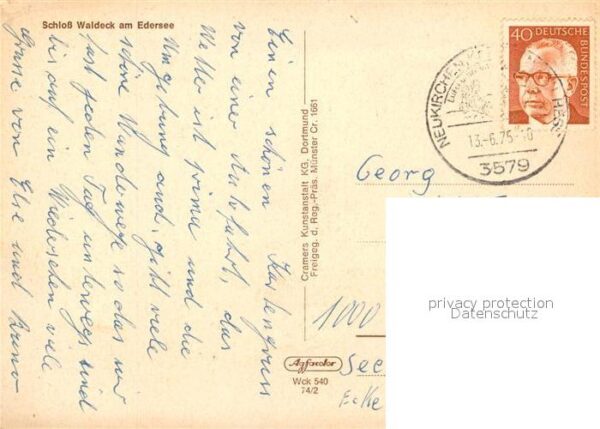 Schloß Waldeck am Edersee
Einen schönen Kartengruss
von einer Ausfahrt, das
Wetter ist prima und die
Umgebung auch, gibt viele
schöne Wanderwege so das wir
fast jeden Tag unterwegs sind
bis auf ein Wiedersehen viele
Grüsse von Else und Bruno
Cramers Kunstanstalt KG, Dortmund
Freigeg. d. Reg.-Präs. Münster Cr. 1661
Agfacolor
Wck 540
74/2
40 DEUTSCHE
BUNDESPOST
NEUKIRCHEN
HESS
13.-6.75
3579
Georg
1000
See
Ecke
privacy protection
Datenschutz